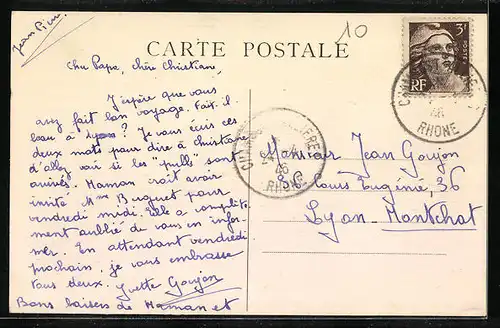 Jean Pierre
10
CARTE POSTALE
Cher Papa, chère Christiane,
J'espère que vous
avez fait bon voyage. Fait-il
beau à Lyon ? Je vous écris ces
deux mots pour dire à Christiane
d'aller voir si les "pulls" sont
arrivés. Maman croit avoir
invité Mme Buguet pour
vendredi midi. Elle a complète-
ment oublié de vous en infor-
mer. En attendant vendredi
prochain, je vous embrasse
tous deux. Yvette Goujon
Bons baisers de Maman et
3F
POSTES
RF
46
RHONE
46
RHONE
Monsieur Jean Goujon
36, Cours Eugénie, 36
Lyon-Montchat